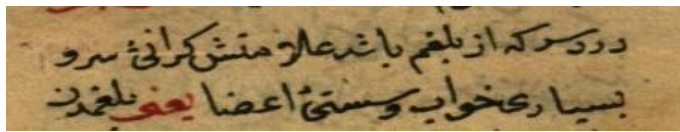 درد سر که از بلغم باشد علامتش کرانئ سر و
بسیاری خواب و سستئ اعضا یعنی بلغمدن